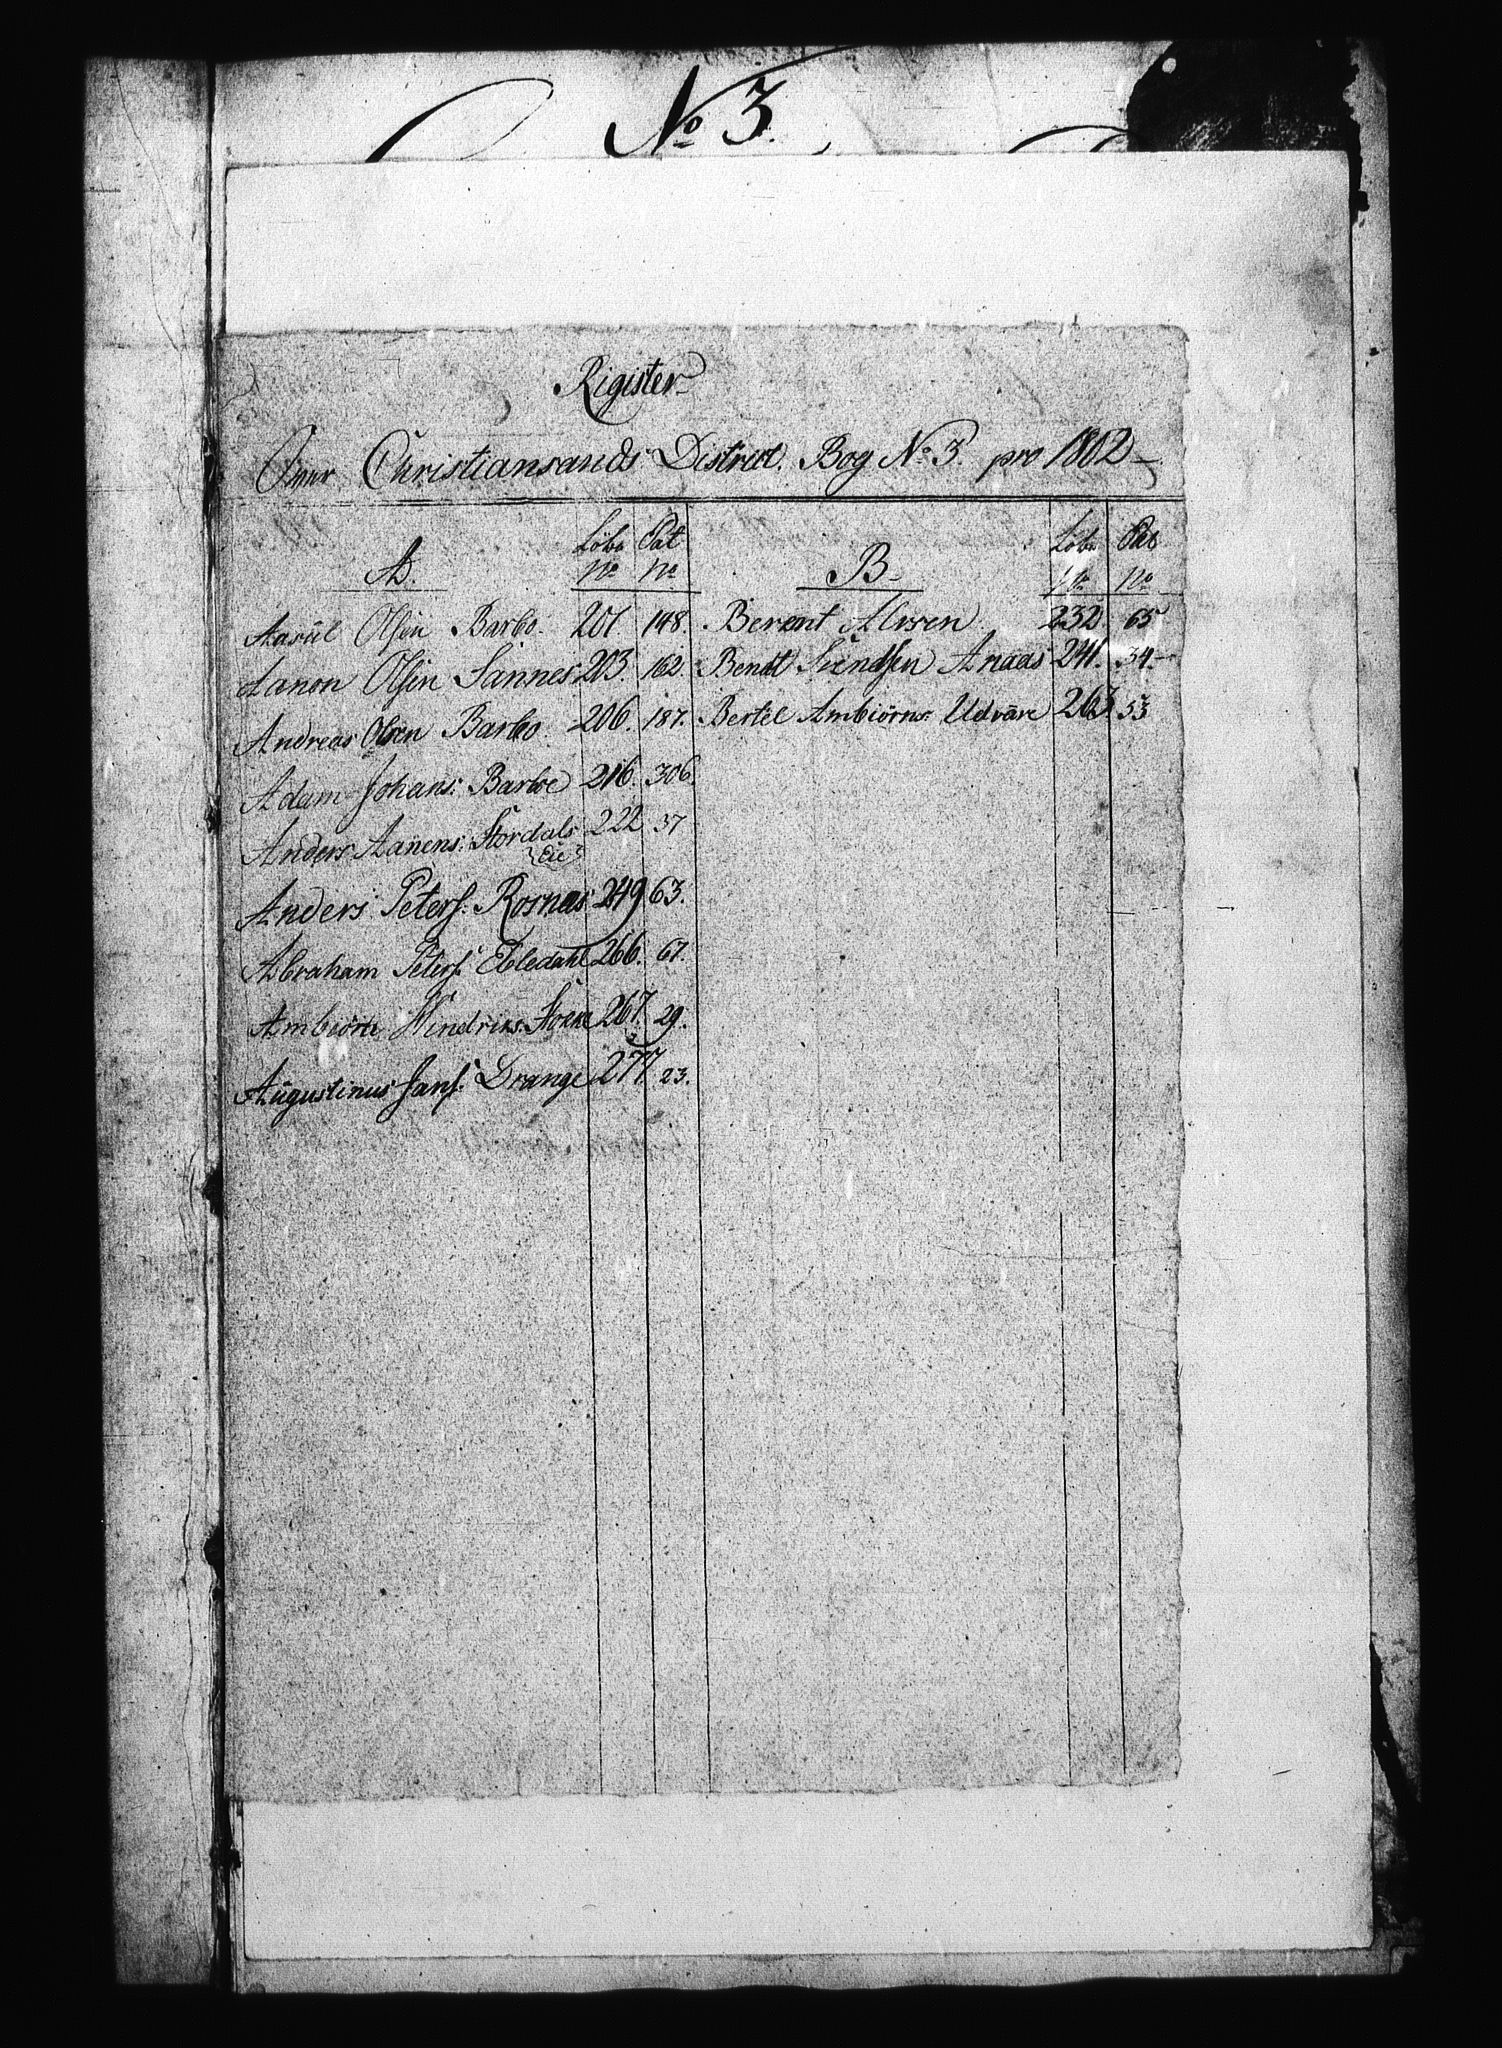 No 3.
Rigister
Over Christiansands District. Bog No 3. pro 1802
A. Löbe No Pat No
Aasül Olsen Barbo. 201. 148.
Aanon Olsen Sannes 203. 162.
Andreas Olsen Barbo. 206. 187.
Adam Johans: Barboe 216. 306.
Anders Aanens: Stordals 222 37
Eie
Anders Peters: Rosnæs 249 63.
Abraham Peters: Ebledahl 266. 67.
Ambiörn Hendriks: 267. 29.
Augustinus Jans: Drange 277 23.
B Löbe No Pat No
Berent Olssen 232 65
Bendt Svendsen 241. 34
Bertel Ambiörns: Udvåre 263. 53